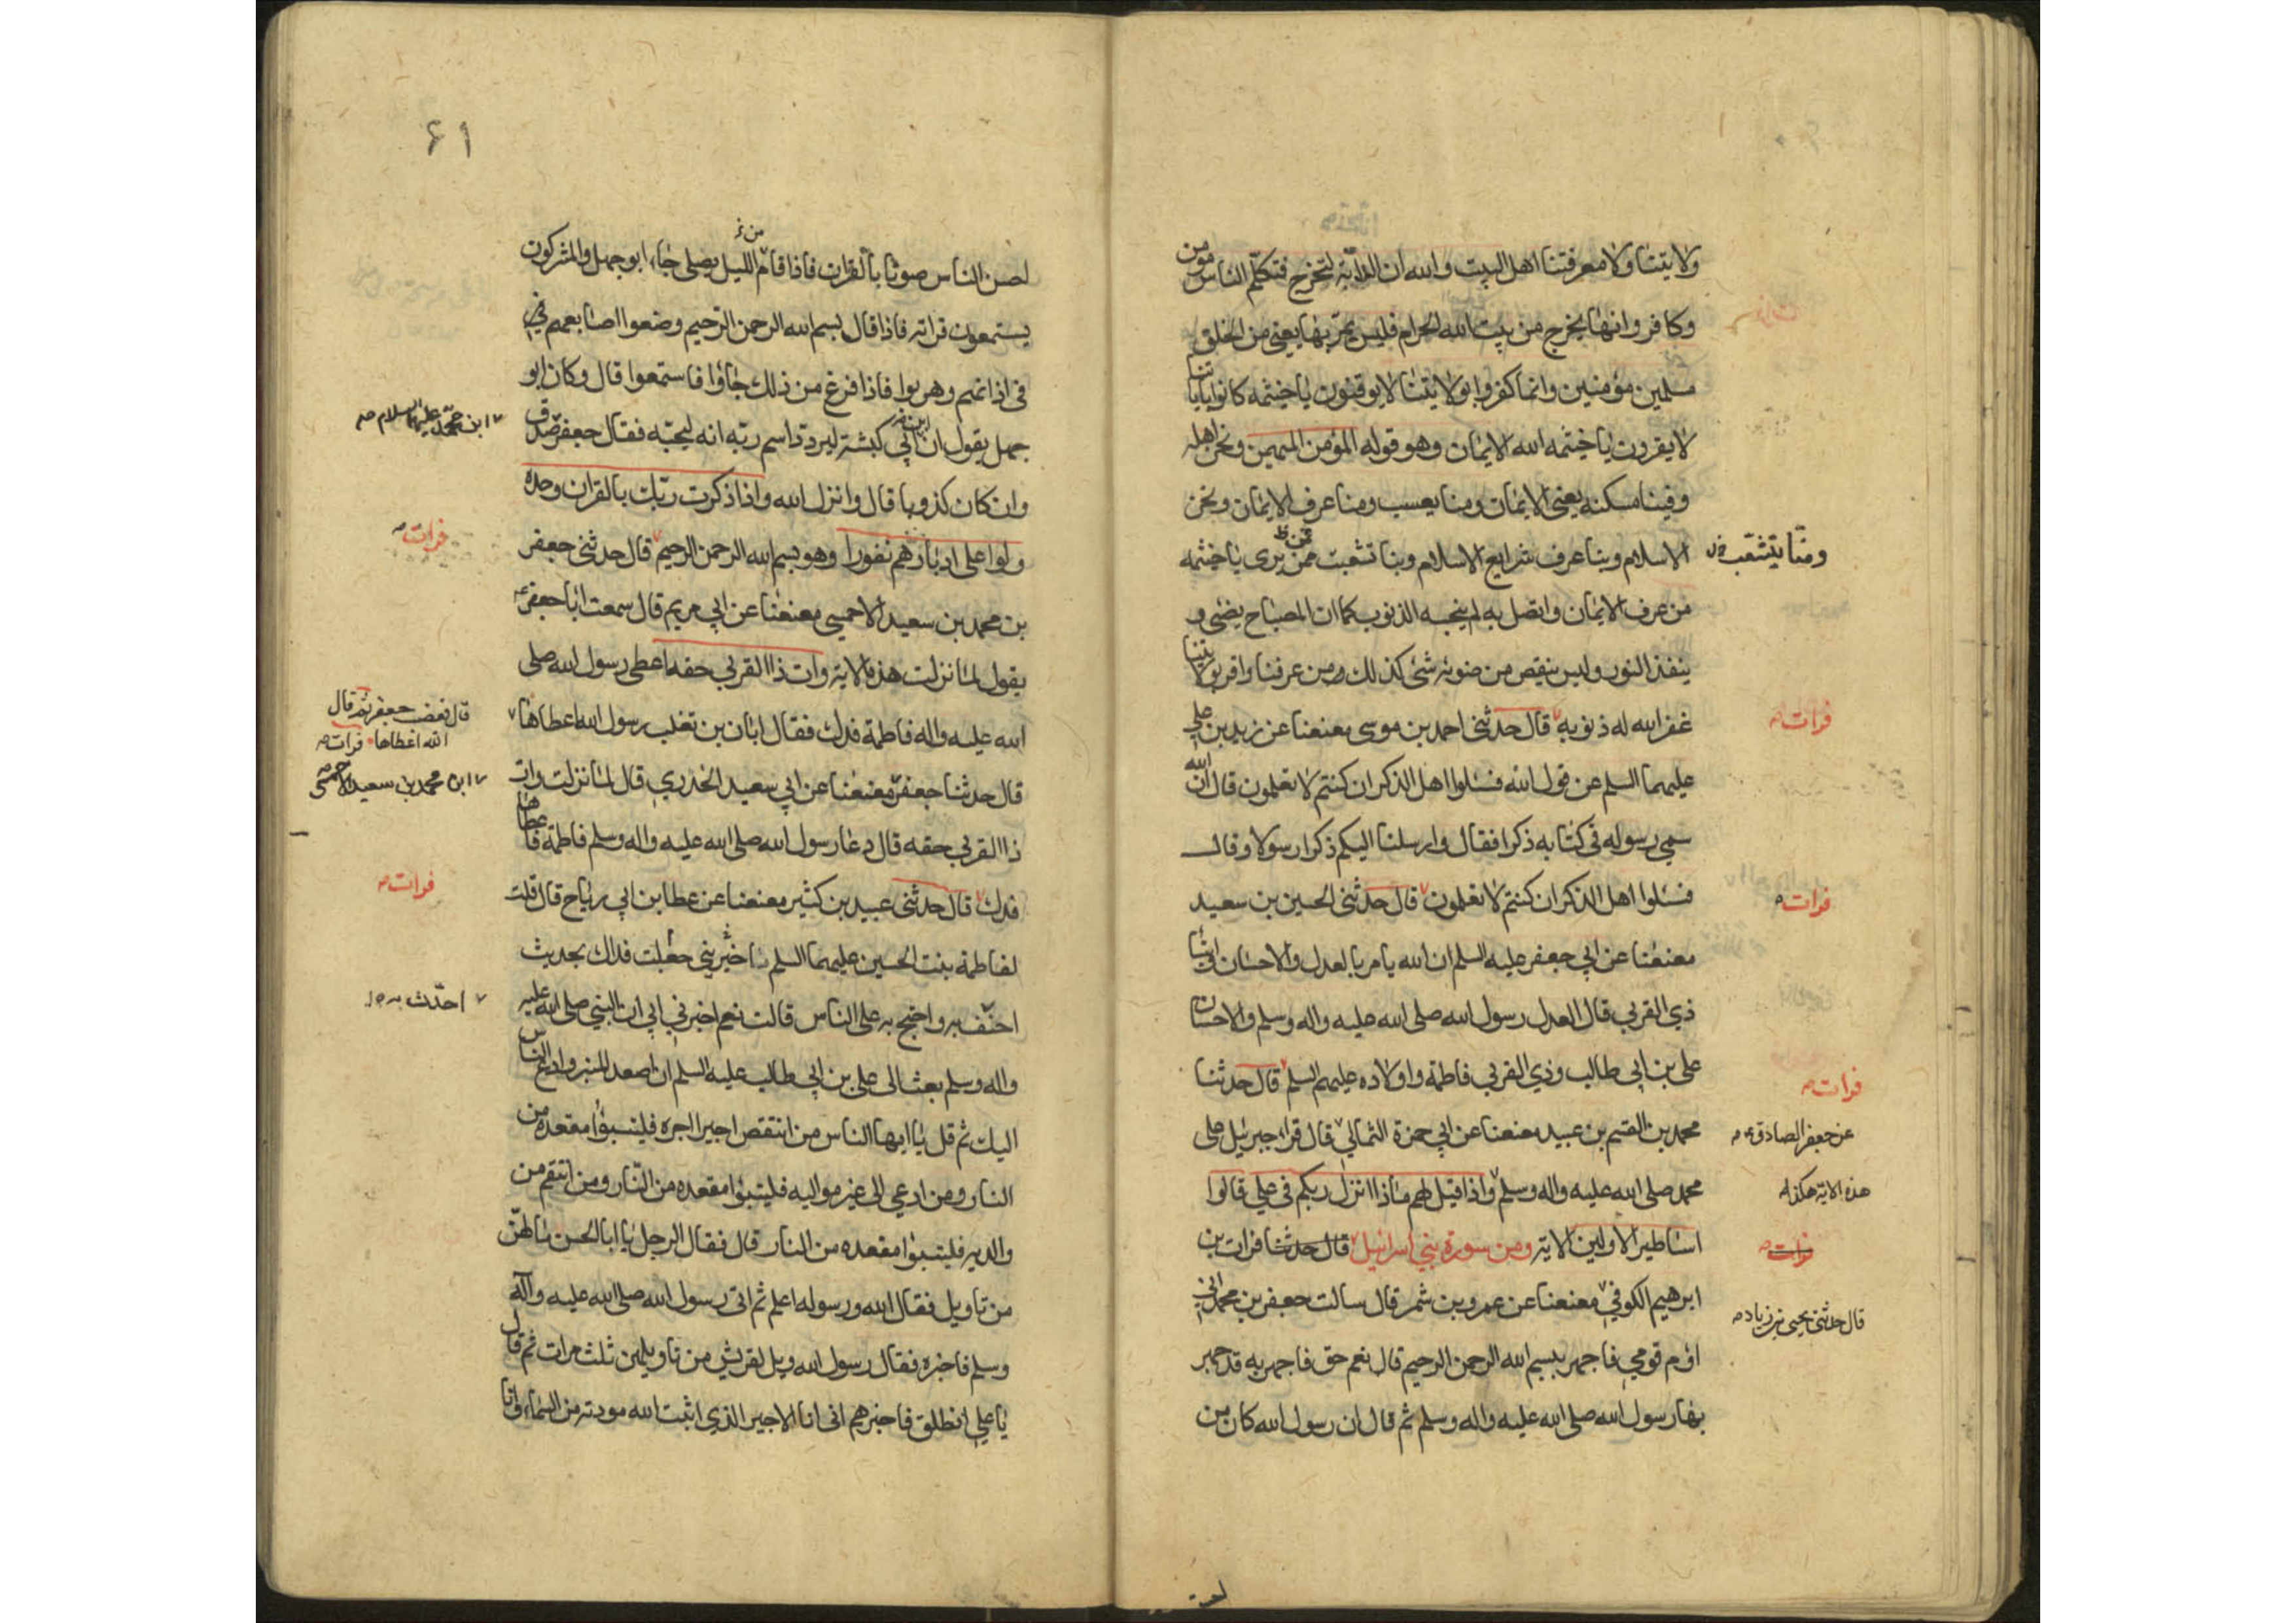 ولايتنا ولا معرفتنا اهل البيت والله ان الدابة لتخرج فتكلم الناس مومن
وكافر وانها يخرج من بيت الله الحرام فليس يمر بها يعنى من الخلق
مسلمين مؤمنين وانما كفروا بولايتنا لا يوقنون يا خيثمه كانوا باياتنا
لا يقرون يا خيثمه الله الايمان وهو قوله المؤمن المهيمن ونحن اهله
وفينا مسكنه يعنى الايمان ومنا يعسب ومنا عرف الايمان ونحن
ومنا يتشعب
الاسلام وبنا عرف شرايع الاسلام وبنا تشعبت ممن يرى يا خيثمه
من عرف الايمان واتصل به لم ينجسه الذنوب كما ان المصباح يضئ و
ينفذ النور وليس ينقص من ضوئه شئ كذلك من عرفنا واقر بولايتنا
غفر الله له ذنوبه قال حدثنى احمد بن موسى معنعنا عن زيد بن على
فرات
عليهما السلم عن قول الله فسئلوا اهل الذكر ان كنتم لا تعلمون قال ان الله
سمى رسوله فى كتابه ذكرا فقال وارسلنا اليكم ذكرا رسولا وقال
فسئلوا اهل الذكر ان كنتم لا تعلمون قال حدثنى الحسين بن سعيد
فرات
معنعنا عن ابي جعفر عليه السلم ان الله يامر بالعدل والاحسان وايتاء
ذي القربي قال العدل رسول الله صلى الله عليه واله وسلم والاحسان
على بن ابي طالب وذي القربي فاطمة واولاده عليهم السلم قال حدثنا
فرات
محمد بن القسم بن عبيد معنعنا عن ابي حمزة الثمالي قال قرا جبرئيل على
عن جعفر الصادق
محمد صلى الله عليه واله وسلم واذا قيل لهم ماذا انزل ربكم فى علي قالوا
هذه الاية هكذا
اساطير الاولين الاية ومن سورة بني اسرائيل قال حدثنا فرات بن
فرات
ابرهيم الكوفي معنعنا عن عمرو بن شمر قال سالت جعفر بن محمد انى
قال حدثنى يحيى بن زياد
اؤم قومي فاجهر ببسم الله الرحمن الرحيم قال نعم حق فاجهر به قد جهر
بها رسول الله صلى الله عليه واله وسلم ثم قال ان رسول الله كان من
۶۱
احسن الناس صوتا بالقران فاذا قام من الليل يصلى جاء ابو جهل والمشركون
يستمعون قراته فاذا قال بسم الله الرحمن الرحيم وضعوا اصابعهم في
فى اذانهم وهربوا فاذا فرغ من ذلك جاؤا فاستمعوا قال وكان ابو
جهل يقول ان ابن ابي كبشة ليردد اسم ربه انه ليحبه فقال جعفر صدق
ابن محمد عليهما السلام
وان كان كذوبا قال وانزل الله واذا ذكرت ربك بالقران وحده
ولوا على ادبارهم نفورا وهو بسم الله الرحمن الرحيم قال حدثنى جعفر
فرات
بن محمد بن سعيد الاحمسي معنعنا عن ابي مريم قال سمعت ابا جعفر
يقول لما نزلت هذه الاية وات ذا القربي حقه اعطى رسول الله صلى
الله عليه واله فاطمة فدك فقال ابان بن تغلب رسول الله اعطاها
قال فغضب جعفر ثم قال
الله اعطاها فرات
قال حدثنا جعفر معنعنا عن ابي سعيد الخدري قال لما نزلت وات
ابن محمد بن سعيد الاحمسي
ذا القربي حقه قال دعا رسول الله صلى الله عليه واله وسلم فاطمة فاعطاها
فدك قال حدثنى عبيد بن كثير معنعنا عن عطا بن ابي رياح قال قلت
فرات
لفاطمة بنت الحسين عليهما السلم اخبريني جعلت فداك بحديث
احتف به واحتج به على الناس قالت نعم اخبرني ابي ان النبي صلى الله عليه
احدث
واله وسلم بعث الى على بن ابي طالب عليه السلم ان اصعد المنبر وادع الناس
اليك ثم قل يا ايها الناس من انتقص اجيرا اجره فليتبوا مقعده من
النار ومن ادعي الى غير مواليه فليتبوا مقعده من النار ومن انتقم من
والديه فليتبوا مقعده من النار قال فقال الرجل يا ابا الحسن مالهن
من تاويل فقال الله ورسوله اعلم ثم اتى رسول الله صلى الله عليه واله
وسلم فاخبره فقال رسول الله ويل لقريش من تاويلهن ثلث مرات ثم قال
يا علي انطلق فاخبرهم انى انا الاجير الذي اثبت الله مودته من السماء وانا